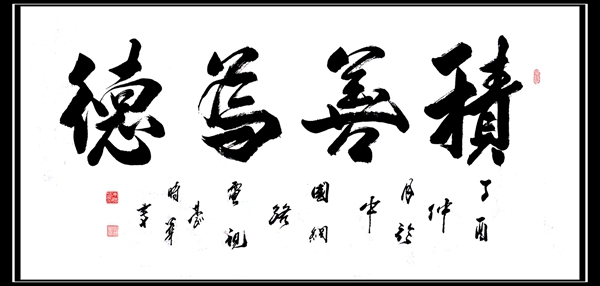 積善為德
丁酉
仲
月於
中
國網
絡
電視
臺
時華
書